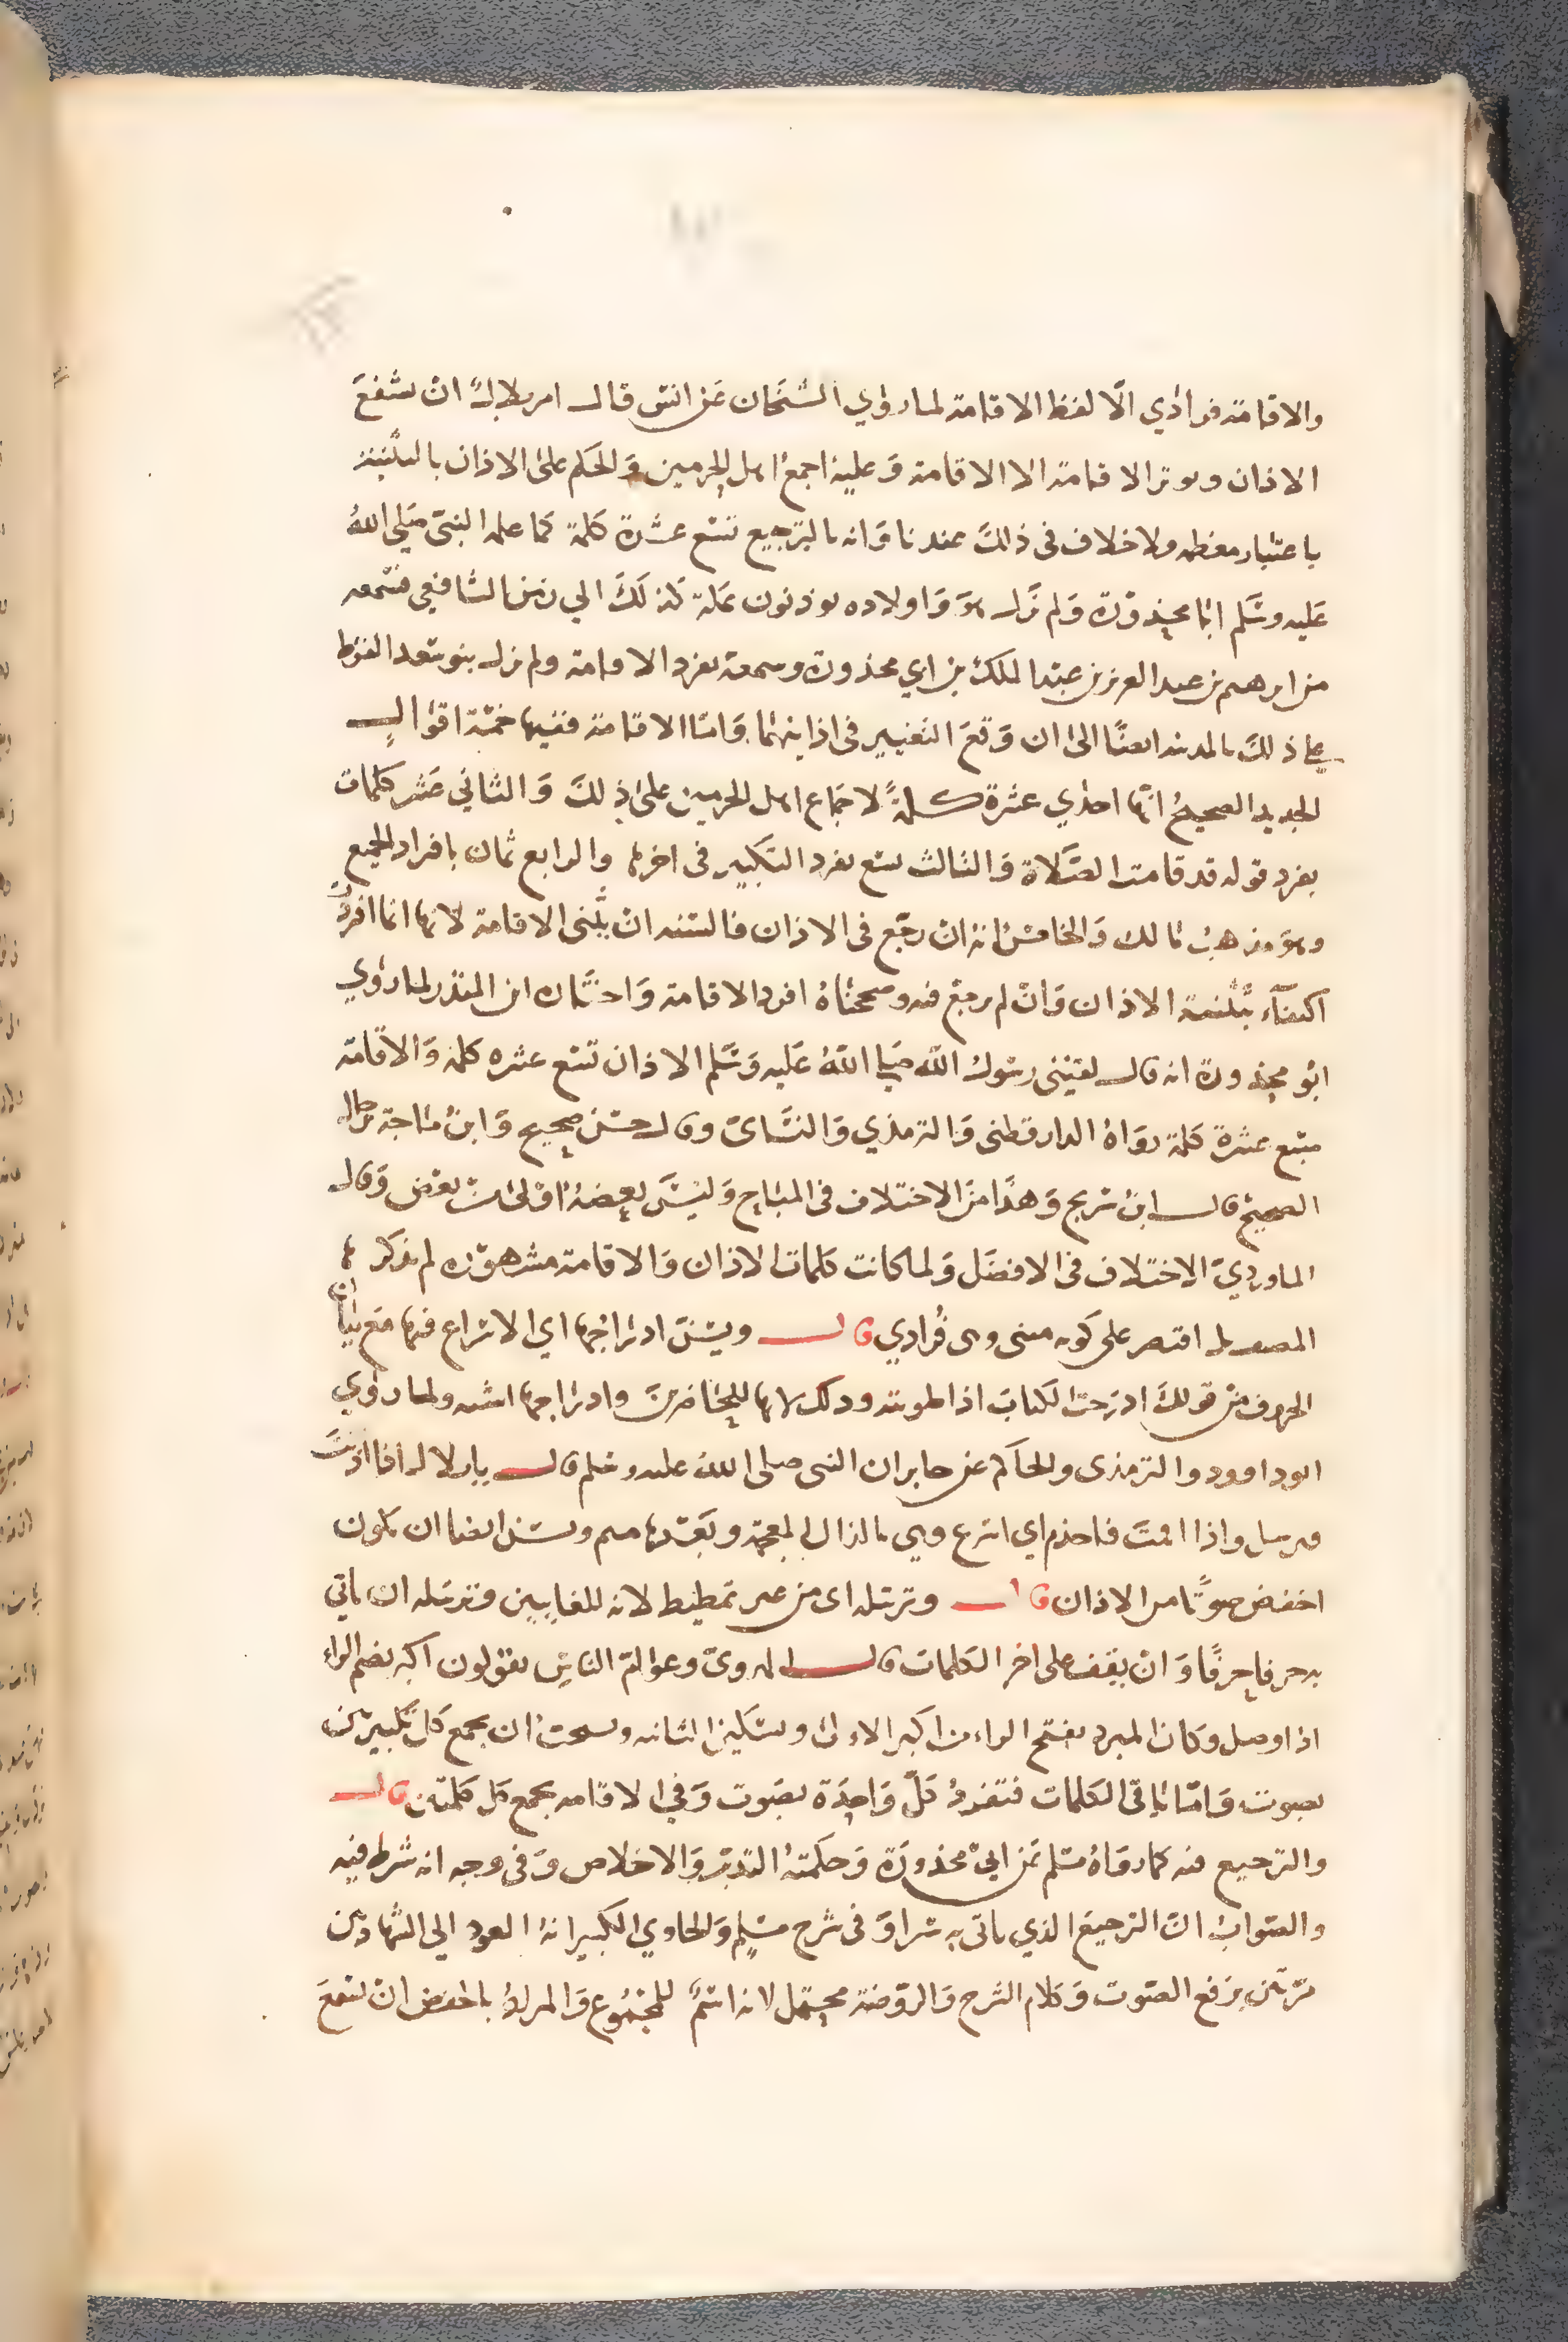 والاقامة فرادي الا لفظ الاقامة لما روي الشيخان عن انس قال امر بلال ان يشفع
الاذان ويوتر الاقامة الا الاقامة وعليه اجمع اهل الحرمين والحكم على الاذان بالتثنية
باعتبار معظمه ولا خلاف في ذلك عندنا وانه بالترجيع تسع عشرة كلمة كما علمه النبي صلى الله
عليه وسلم ابا محذورة ولم نزل هو واولاده يوذنون بمكة كذلك الي زمن الشافعي فسمعه
من ابرهيم بن عبد العزيز بن عبد الملك بن ابي محذورة وسمعه يفرد الاقامة ولم نزل بنو سعد القرظ
على ذلك بالمدينة ايضا الى ان وقع التغيير في اذانهما واما الاقامة ففيها خمسة اقوال
الجديد الصحيح انها احدي عشرة كلمة لاجماع اهل الحرمين على ذلك والثاني عشر كلمات
يفرد قوله قد قامت الصلاة والثالث تسع يفرد التكبير في اخرها والرابع ثمان بافراد الجميع
وهو مذهب مالك والخامس انه ان رجع في الاذان فالسنة ان يثني الاقامة لانها انما افردت
اكتفاء بتثنية الاذان وان لم يرجع فيه وصححناه افرد الاقامة واختاره ابن المنذر لما روي
ابو محذورة انه قال لقنني رسول الله صلى الله عليه وسلم الاذان تسع عشره كلمة والاقامة
سبع عشرة كلمة رواه الدارقطني والترمذي والنسائ وقال حسن صحيح وابن ماجة برجال
الصحيح قال ابن سريج وهذا من الاختلاف في المباح وليس بعضه اولى من بعض وقال
الماوردي الاختلاف في الافضل ولما كانت كلمات الاذان والاقامة مشهوره لم يذكرها
المصنف بل اقتصر على كونه مثنى وهي فرادي قال ويسن ادراجها اي الاسراع فيها مع بيان
الحروف من قولك ادرجت الكتاب اذا طويته وذلك لانها للحاضرين وادراجها اشبه ولما روي
ابو داوود والترمذى والحاكم عن جابر ان النبى صلى الله عليه وسلم قال يا بلال اذا اذنت
فترسل واذا اقمت فاحذم اي اسرع وهي بالذال المعجمة وبعدها ميم ويسن ايضا ان يكون
اخفض صوتا من الاذان قال وترتيله اى من غير تمطيط لانه للغايبين وترتيله ان ياتي
به حرفا حرفا وان يقف على اخر الكلمات قال الهروى وعوام الناس يقولون اكبر بضم الراء
اذا وصل وكان المبرد يفتح الراء من اكبر الاولى ويسكن الثانيه ويستحب ان يجمع كل تكبيرتين
بصوت واما باقى الكلمات فتفرد كل واحدة بصوت وفي الاقامه يجمع كل كلمتين قال
والترجيع فيه كما رواه مسلم عن ابي محذورة وحكمته التدبر والاخلاص وفى وجه انه شرط فيه
والصواب ان الترجيع الذي ياتى به سرا وفى شرح مسلم والحاوي الكبير انه العود الي الشهادتين
مرتين برفع الصوت وكلام الشرح والروضة محتمل لانه اسم للمجموع والمراد بالخفض ان يسمع